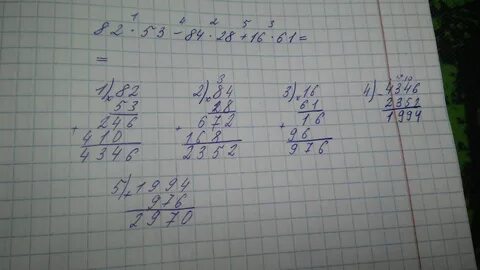 82 · 53 - 84 · 28 + 16 · 61 =
1 4 2 5 3
=
1) × 82
53
+ 246
410
4346
2) × 84
3
28
+ 672
168
2352
3) × 16
61
+ 16
96
976
4) - 4346
2352
1994
5) + 1994
976
2970